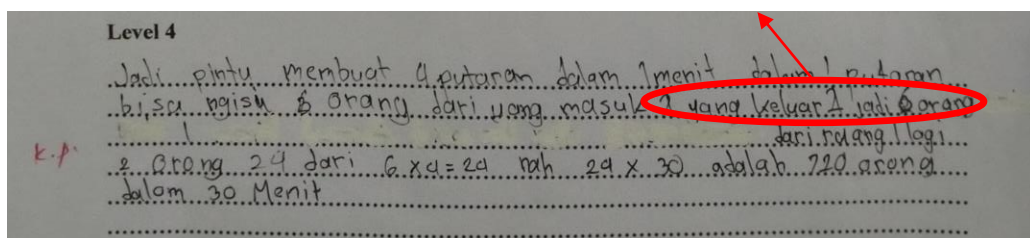 Level 4
Jadi pintu membuat 4 putaran dalam 1 menit dalam 1 putaran
bisa ngisu 6 orang dari yang masuk 2 yang keluar 1 jadi 6 orang
1 dari ruang 1 lagi
k.p. 2 orang 24 dari 6 x 4 = 24 nah 24 x 30 adalah 720 orang
dalam 30 Menit